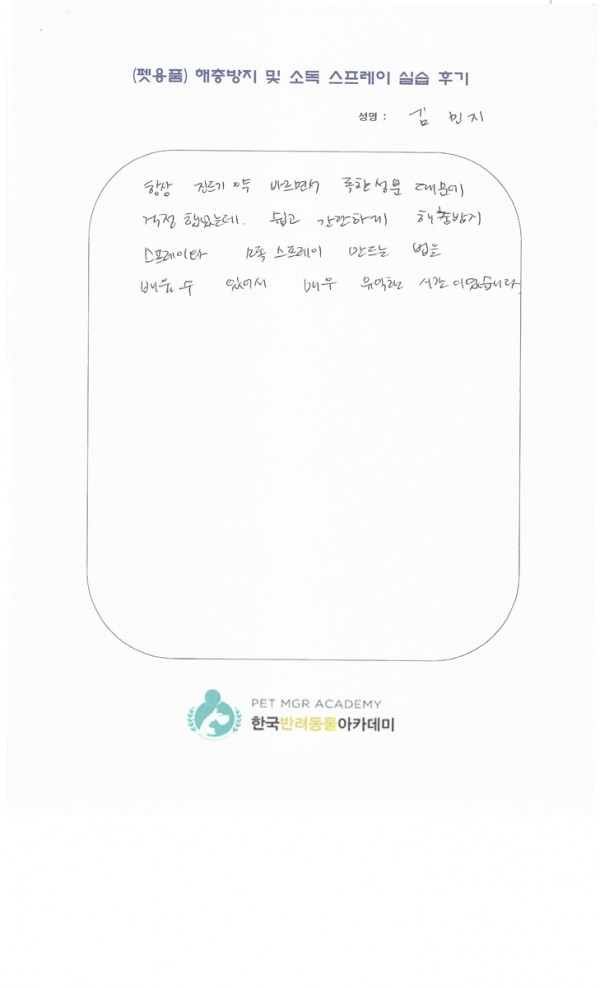 (펫용품) 해충방지 및 소독 스프레이 실습 후기
성명 : 김 민지
항상 진드기 약 바르면서 독한 성분 때문에
걱정 했었는데. 쉽고 간편하게 해충방지
스프레이와 소독 스프레이 만드는 법을
배울 수 있어서 매우 유익한 시간이었습니다.
PET MGR ACADEMY
한국반려동물아카데미